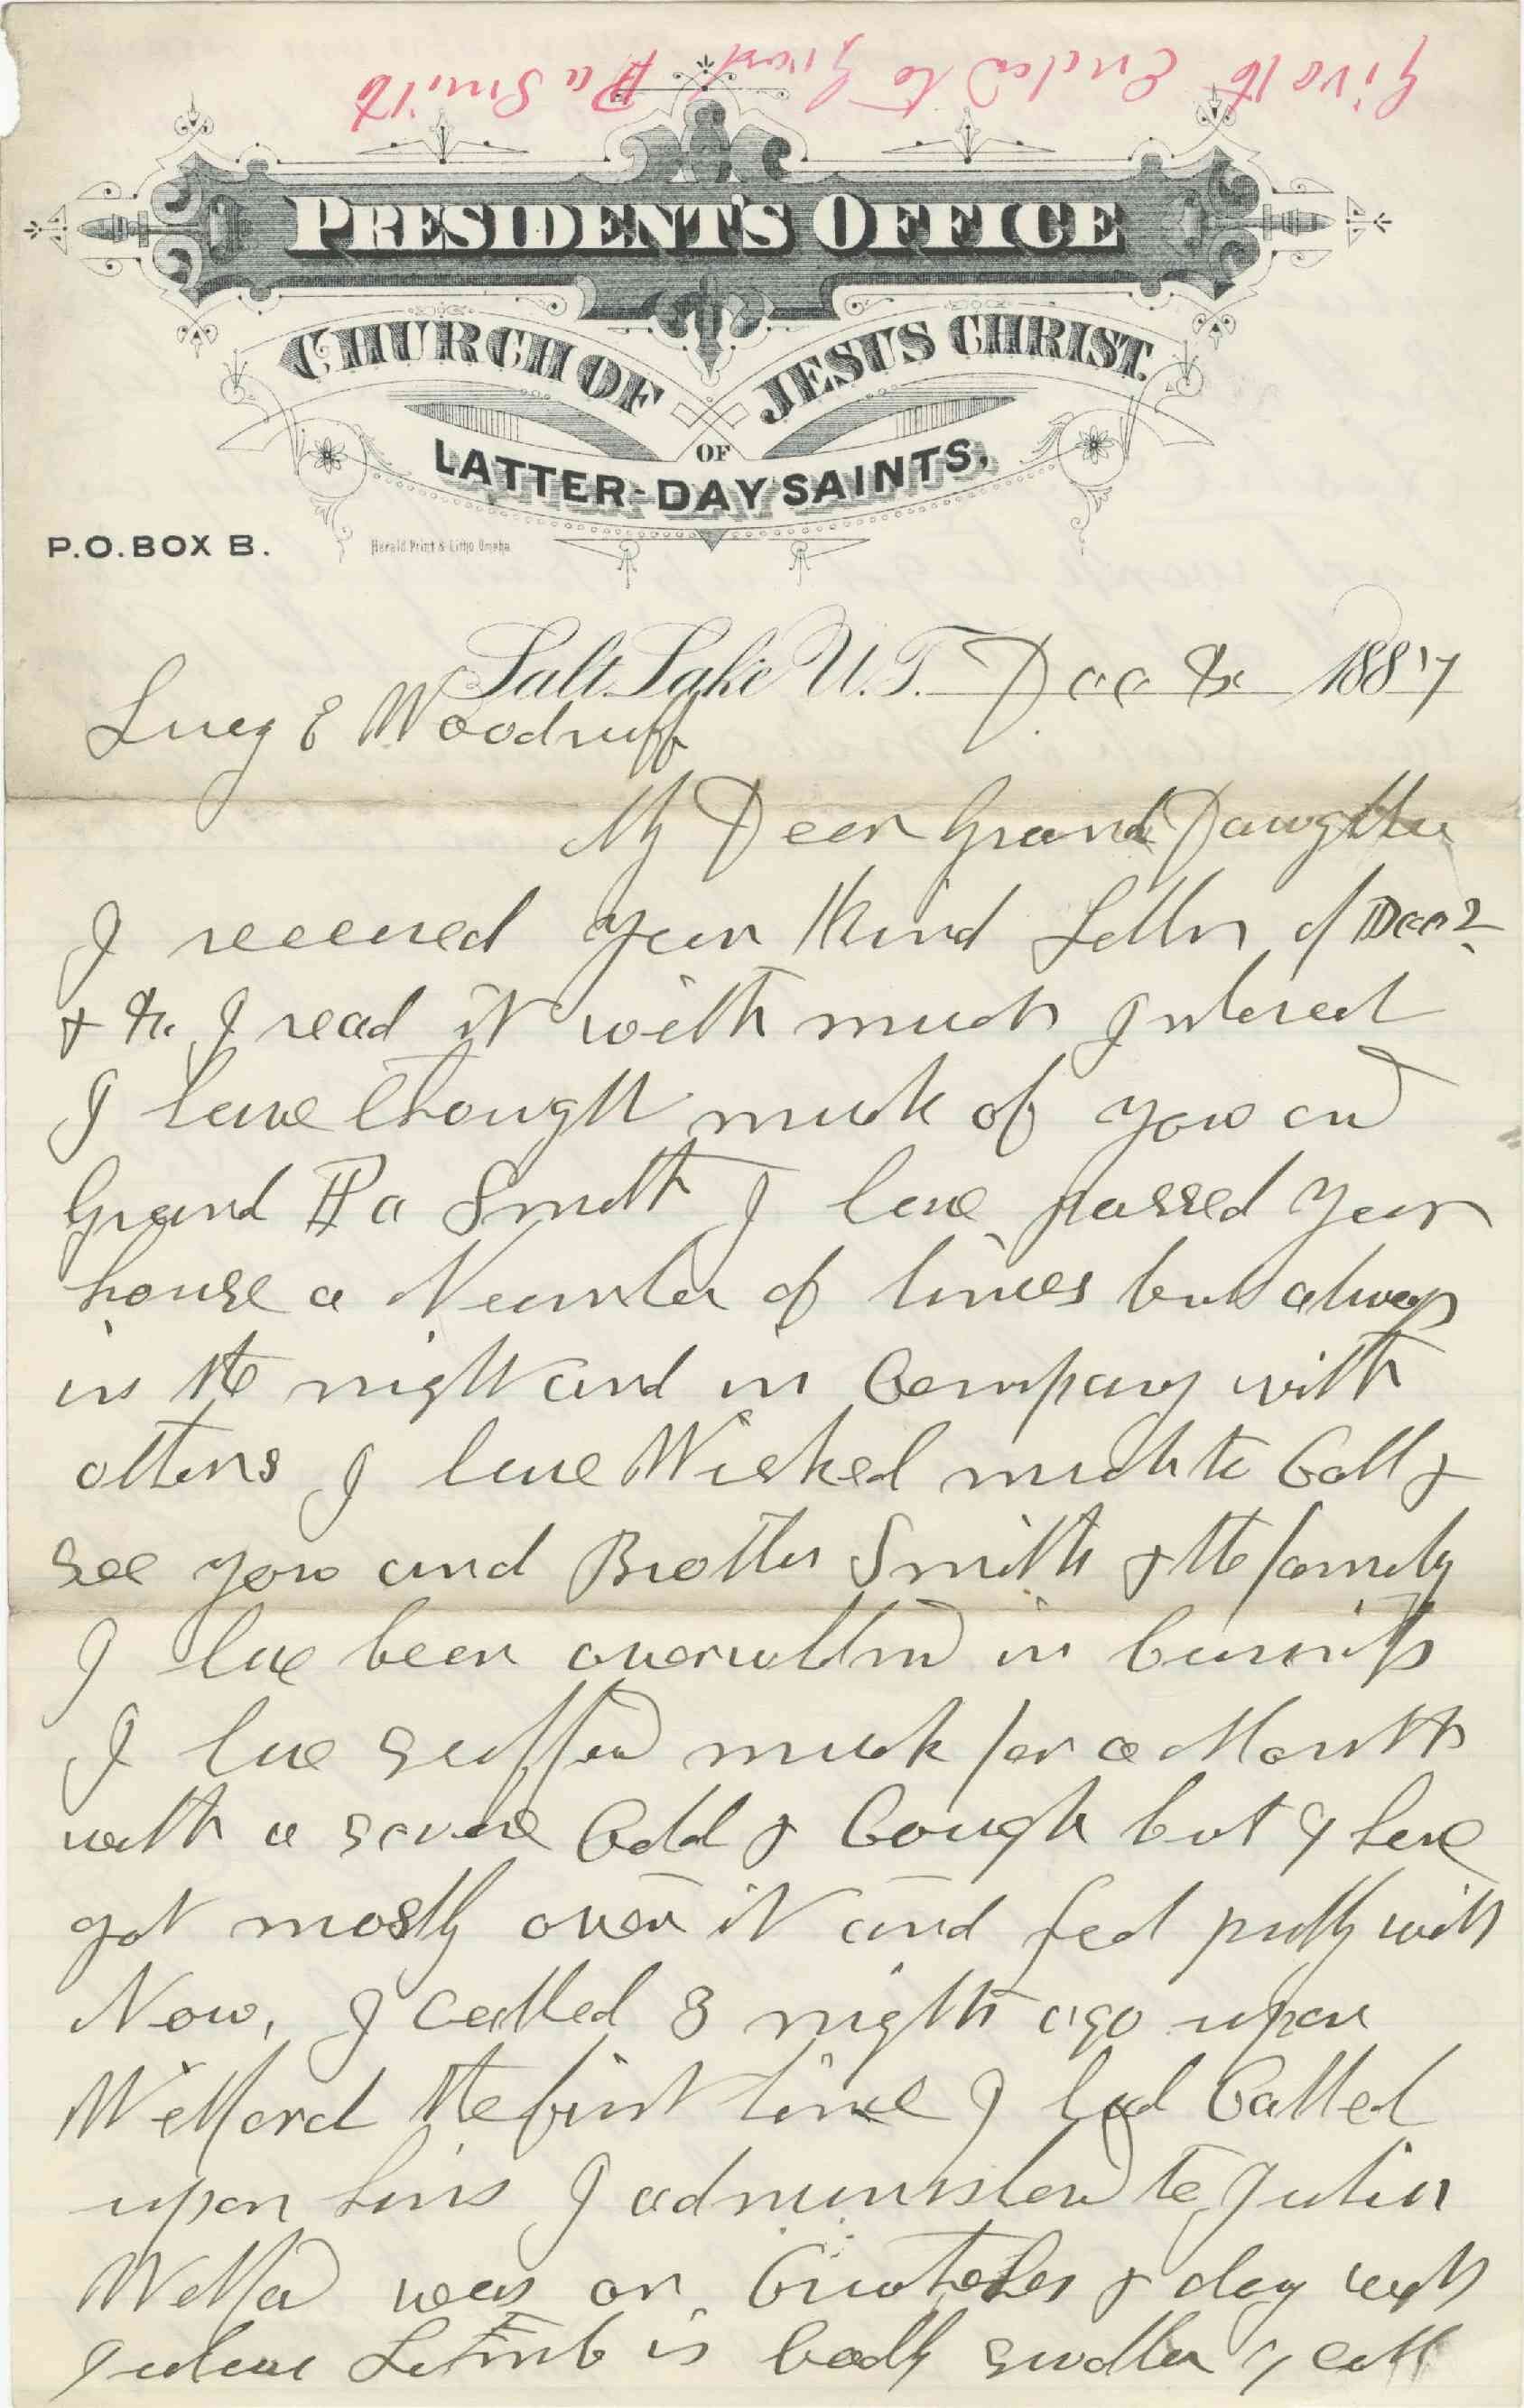 Give the Enclosd to Grand Pa Smith
PRESIDENT'S OFFICE
CHURCH OF JESUS CHRIST
OF
LATTER-DAY SAINTS.
P.O. BOX B.
Herald Print & Litho Omaha
Salt Lake U.T. Dec 8 1887
Lucy E Woodruff
My Dear Grand Daughter
I received your Kind Letter of Dec 2
I read it with much Interest
I have thought much of you and
Grand Pa Smith I have passed your
house a Number of times but always
in the night and in Company with
others I have Wished much to Call &
see you and Brother Smith & the family
I have been overwhelmd in buisniss
I have sufferd much for a Month
with a severe Cold & Cough but I have
got mostly over it and feel pretty well
Now, I called 3 nights ago upon
Wilford the first time I had Called
upon him I administerd to Julia
Willfd was on Crutches & day with
Limb is badly swollen I call